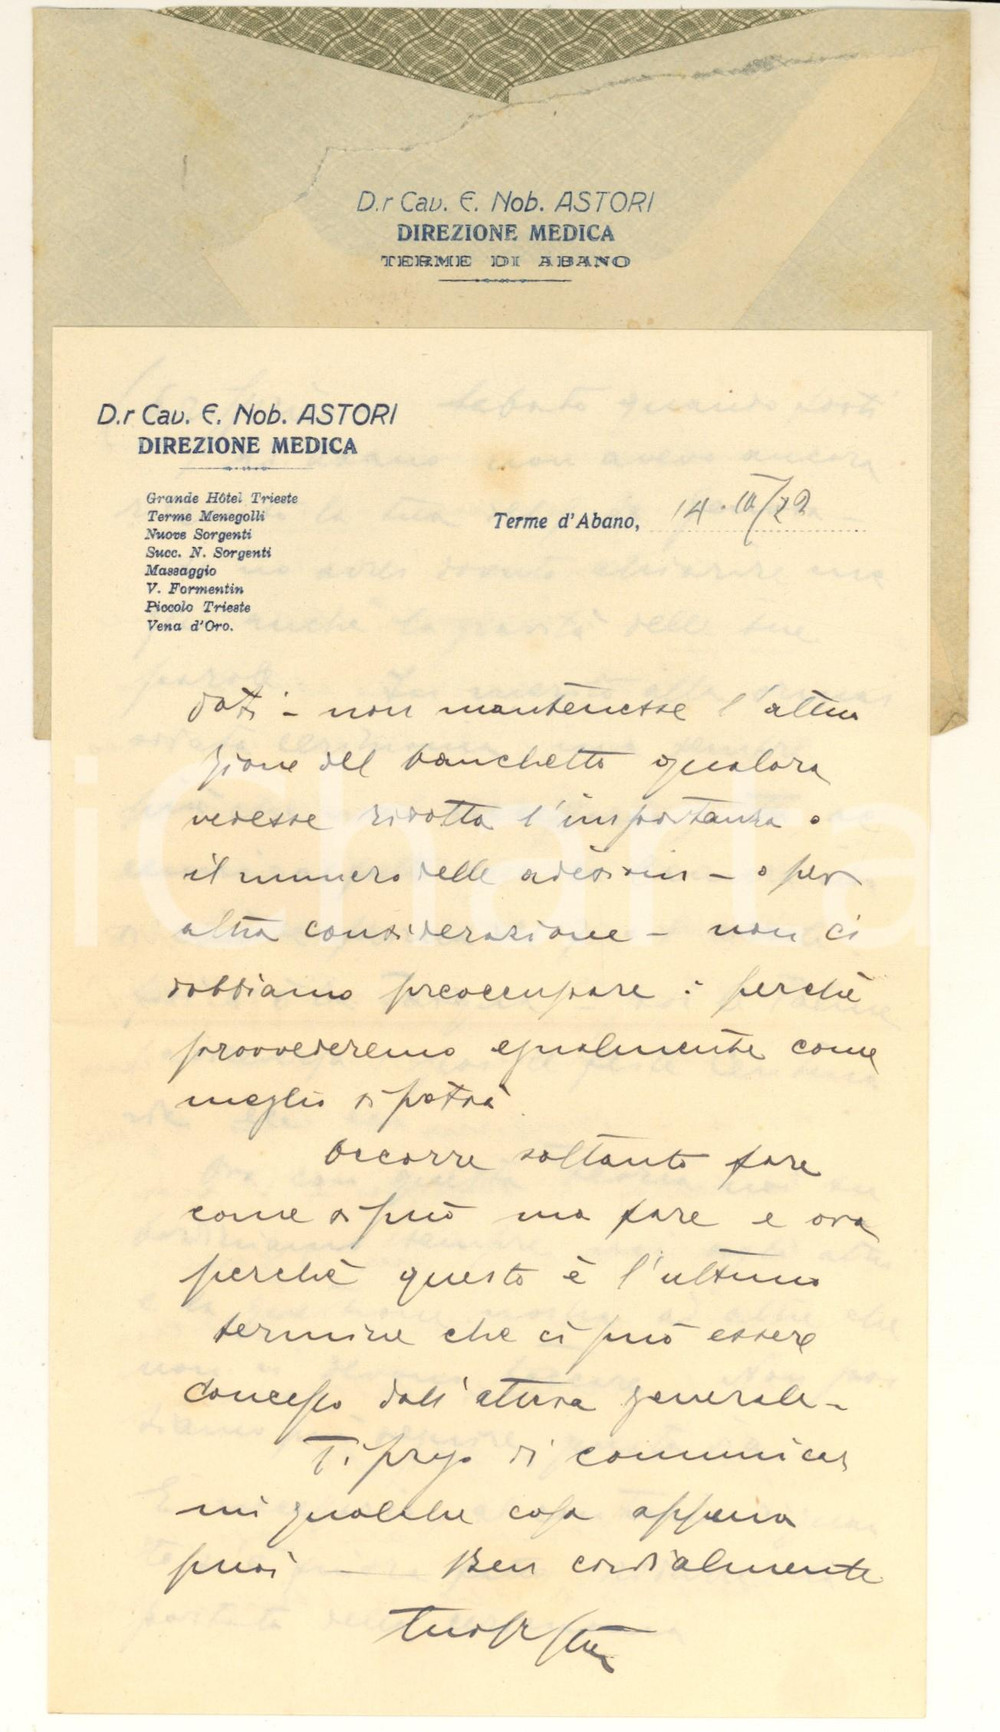 D.r Cav. E. Nob. ASTORI
DIREZIONE MEDICA
TERME DI ABANO
D.r Cav. E. Nob. ASTORI
DIREZIONE MEDICA
Grande Hôtel Trieste
Terme Menegolli
Nuove Sorgenti
Succ. N. Sorgenti
Massaggio
V. Formentin
Piccolo Trieste
Vena d'Oro.
Terme d'Abano, 14
non mantenesse
del banchetto qualora
vedesse ridotta l'importanza o
il numero delle adesioni - o per
altra considerazione - non ci
dobbiamo preoccupare : perchè
provvederemo egualmente come
meglio si potrà
Occorre soltanto fare
come si può ma fare e ora
perchè questo è l'ultimo
termine che ci può essere
concesso dall'attesa generale -
Ti prego di comunicar
mi qualche cosa appena
puoi - Ben cordialmente
iCharta